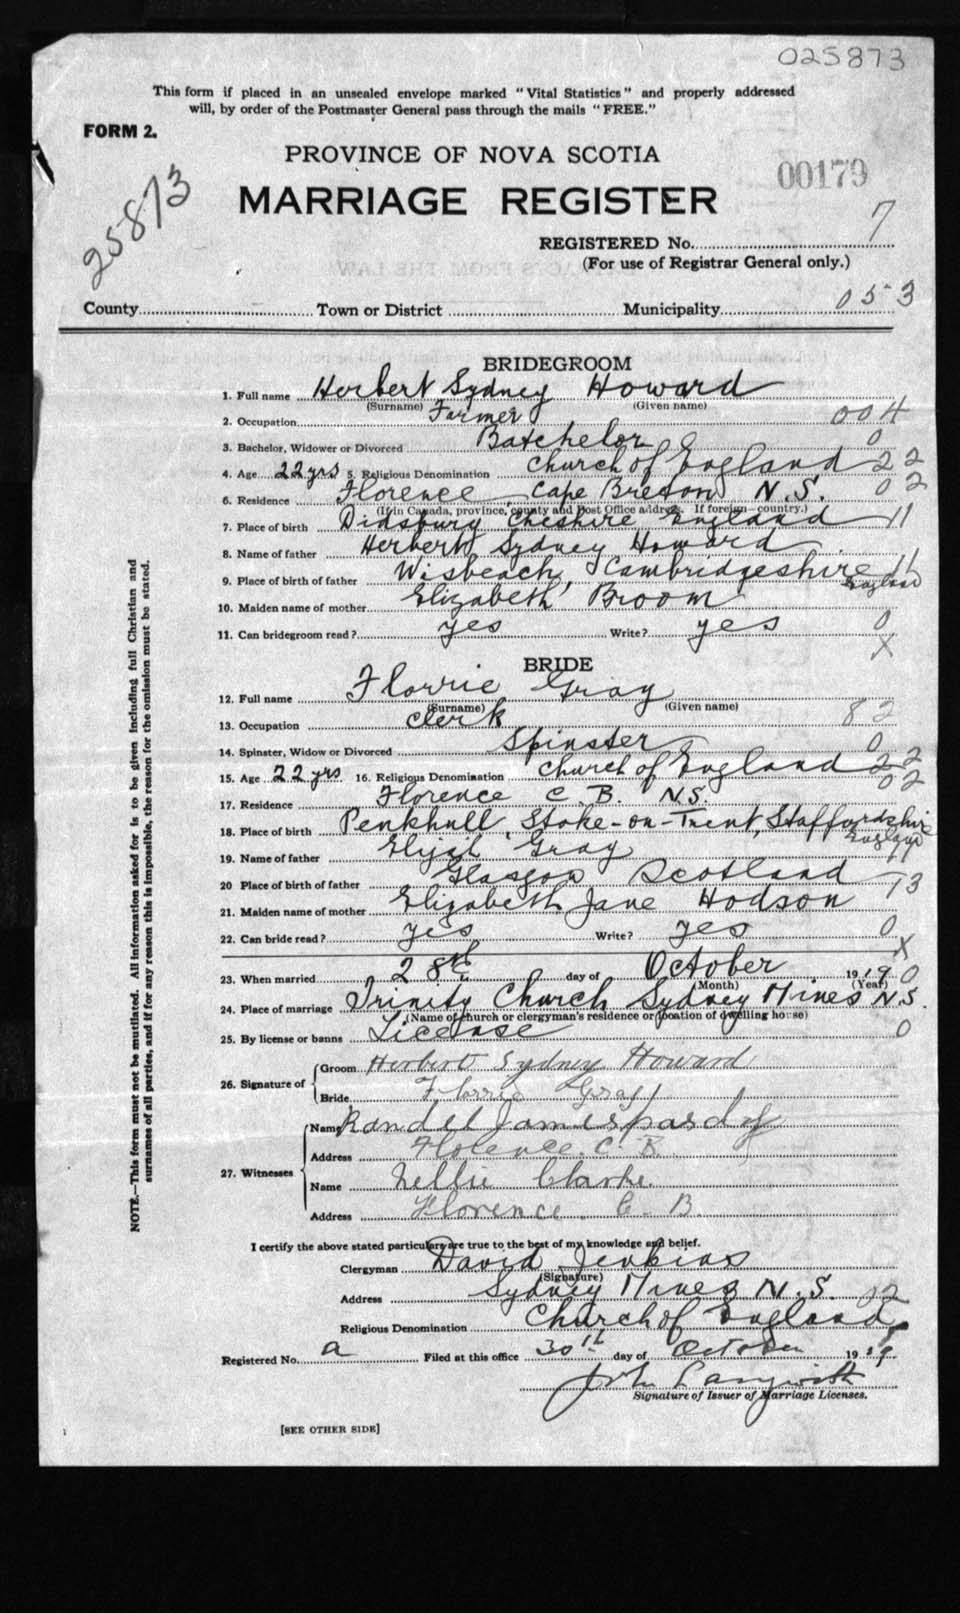 025873
This form if placed in an unsealed envelope marked "Vital Statistics" and properly addressed
will, by order of the Postmaster General pass through the mails "FREE."
FORM 2.
PROVINCE OF NOVA SCOTIA
00179
25873
MARRIAGE REGISTER
REGISTERED No. 7
(For use of Registrar General only.)
County Town or District Municipality 053
BRIDEGROOM
1. Full name Herbert Sydney Howard
(Surname) (Given name)
2. Occupation Farmer 004
3. Bachelor, Widower or Divorced Batchelor 0
4. Age 22 yrs 5. Religious Denomination Church of England 22
6. Residence Florence Cape Breton N.S. 02
(If in Canada, province, county and Post Office address. If foreign—country.)
7. Place of birth Didsbury Cheshire England 11
8. Name of father Herbert Sydney Howard
9. Place of birth of father Wisbeach, Cambridgeshire 11
England
10. Maiden name of mother Elizabeth Broom
11. Can bridegroom read? yes Write? yes 0
X
BRIDE
12. Full name Florrie Gray
(Surname) (Given name)
13. Occupation Clerk 82
14. Spinster, Widow or Divorced Spinster 0
15. Age 22 yrs 16. Religious Denomination Church of England 22
17. Residence Florence C. B. N.S. 02
18. Place of birth Penkhull, Stoke-on-Trent, Staffordshire
England
19. Name of father Elijah Gray 11
20 Place of birth of father Glasgow Scotland 13
21. Maiden name of mother Elizabeth Jane Hodson
22. Can bride read? yes Write? yes 0
X
23. When married 28th day of October 1919 0
(Month) (Year)
24. Place of marriage Trinity Church Sydney Mines N.S.
(Name of church or clergyman's residence or location of dwelling house)
25. By license or banns License 0
26. Signature of
Groom Herbert Sydney Howard
Bride Florrie Gray
27. Witnesses
Name Randel James
Address Florence C. B.
Name Nellie Clarke.
Address Florence C. B.
I certify the above stated particulars are true to the best of my knowledge and belief.
Clergyman David Jenkins
(Signature)
Address Sydney Mines N.S. 02
Religious Denomination Church of England
Registered No. a Filed at this office 30th day of October 1919
John Langwith
Signature of Issuer of Marriage Licenses.
[SEE OTHER SIDE]
NOTE.—This form must not be mutilated. All information asked for is to be given including full Christian and
surnames of all parties, and if for any reason this is impossible, the reason for the omission must be stated.